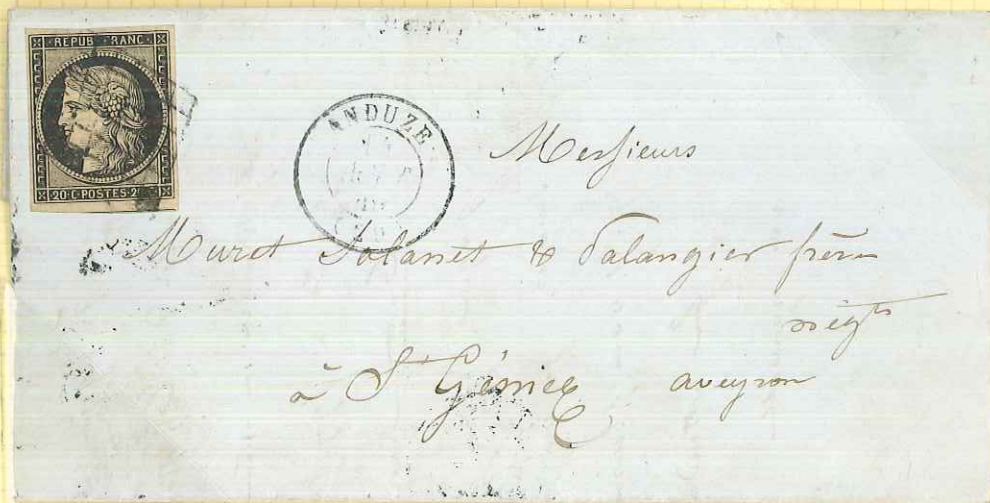 REPUB FRANC
20·C·POSTES·2
ANDUZE
Messieurs
Muret Solanet & Palangier frères
négts
à St Géniez aveyron